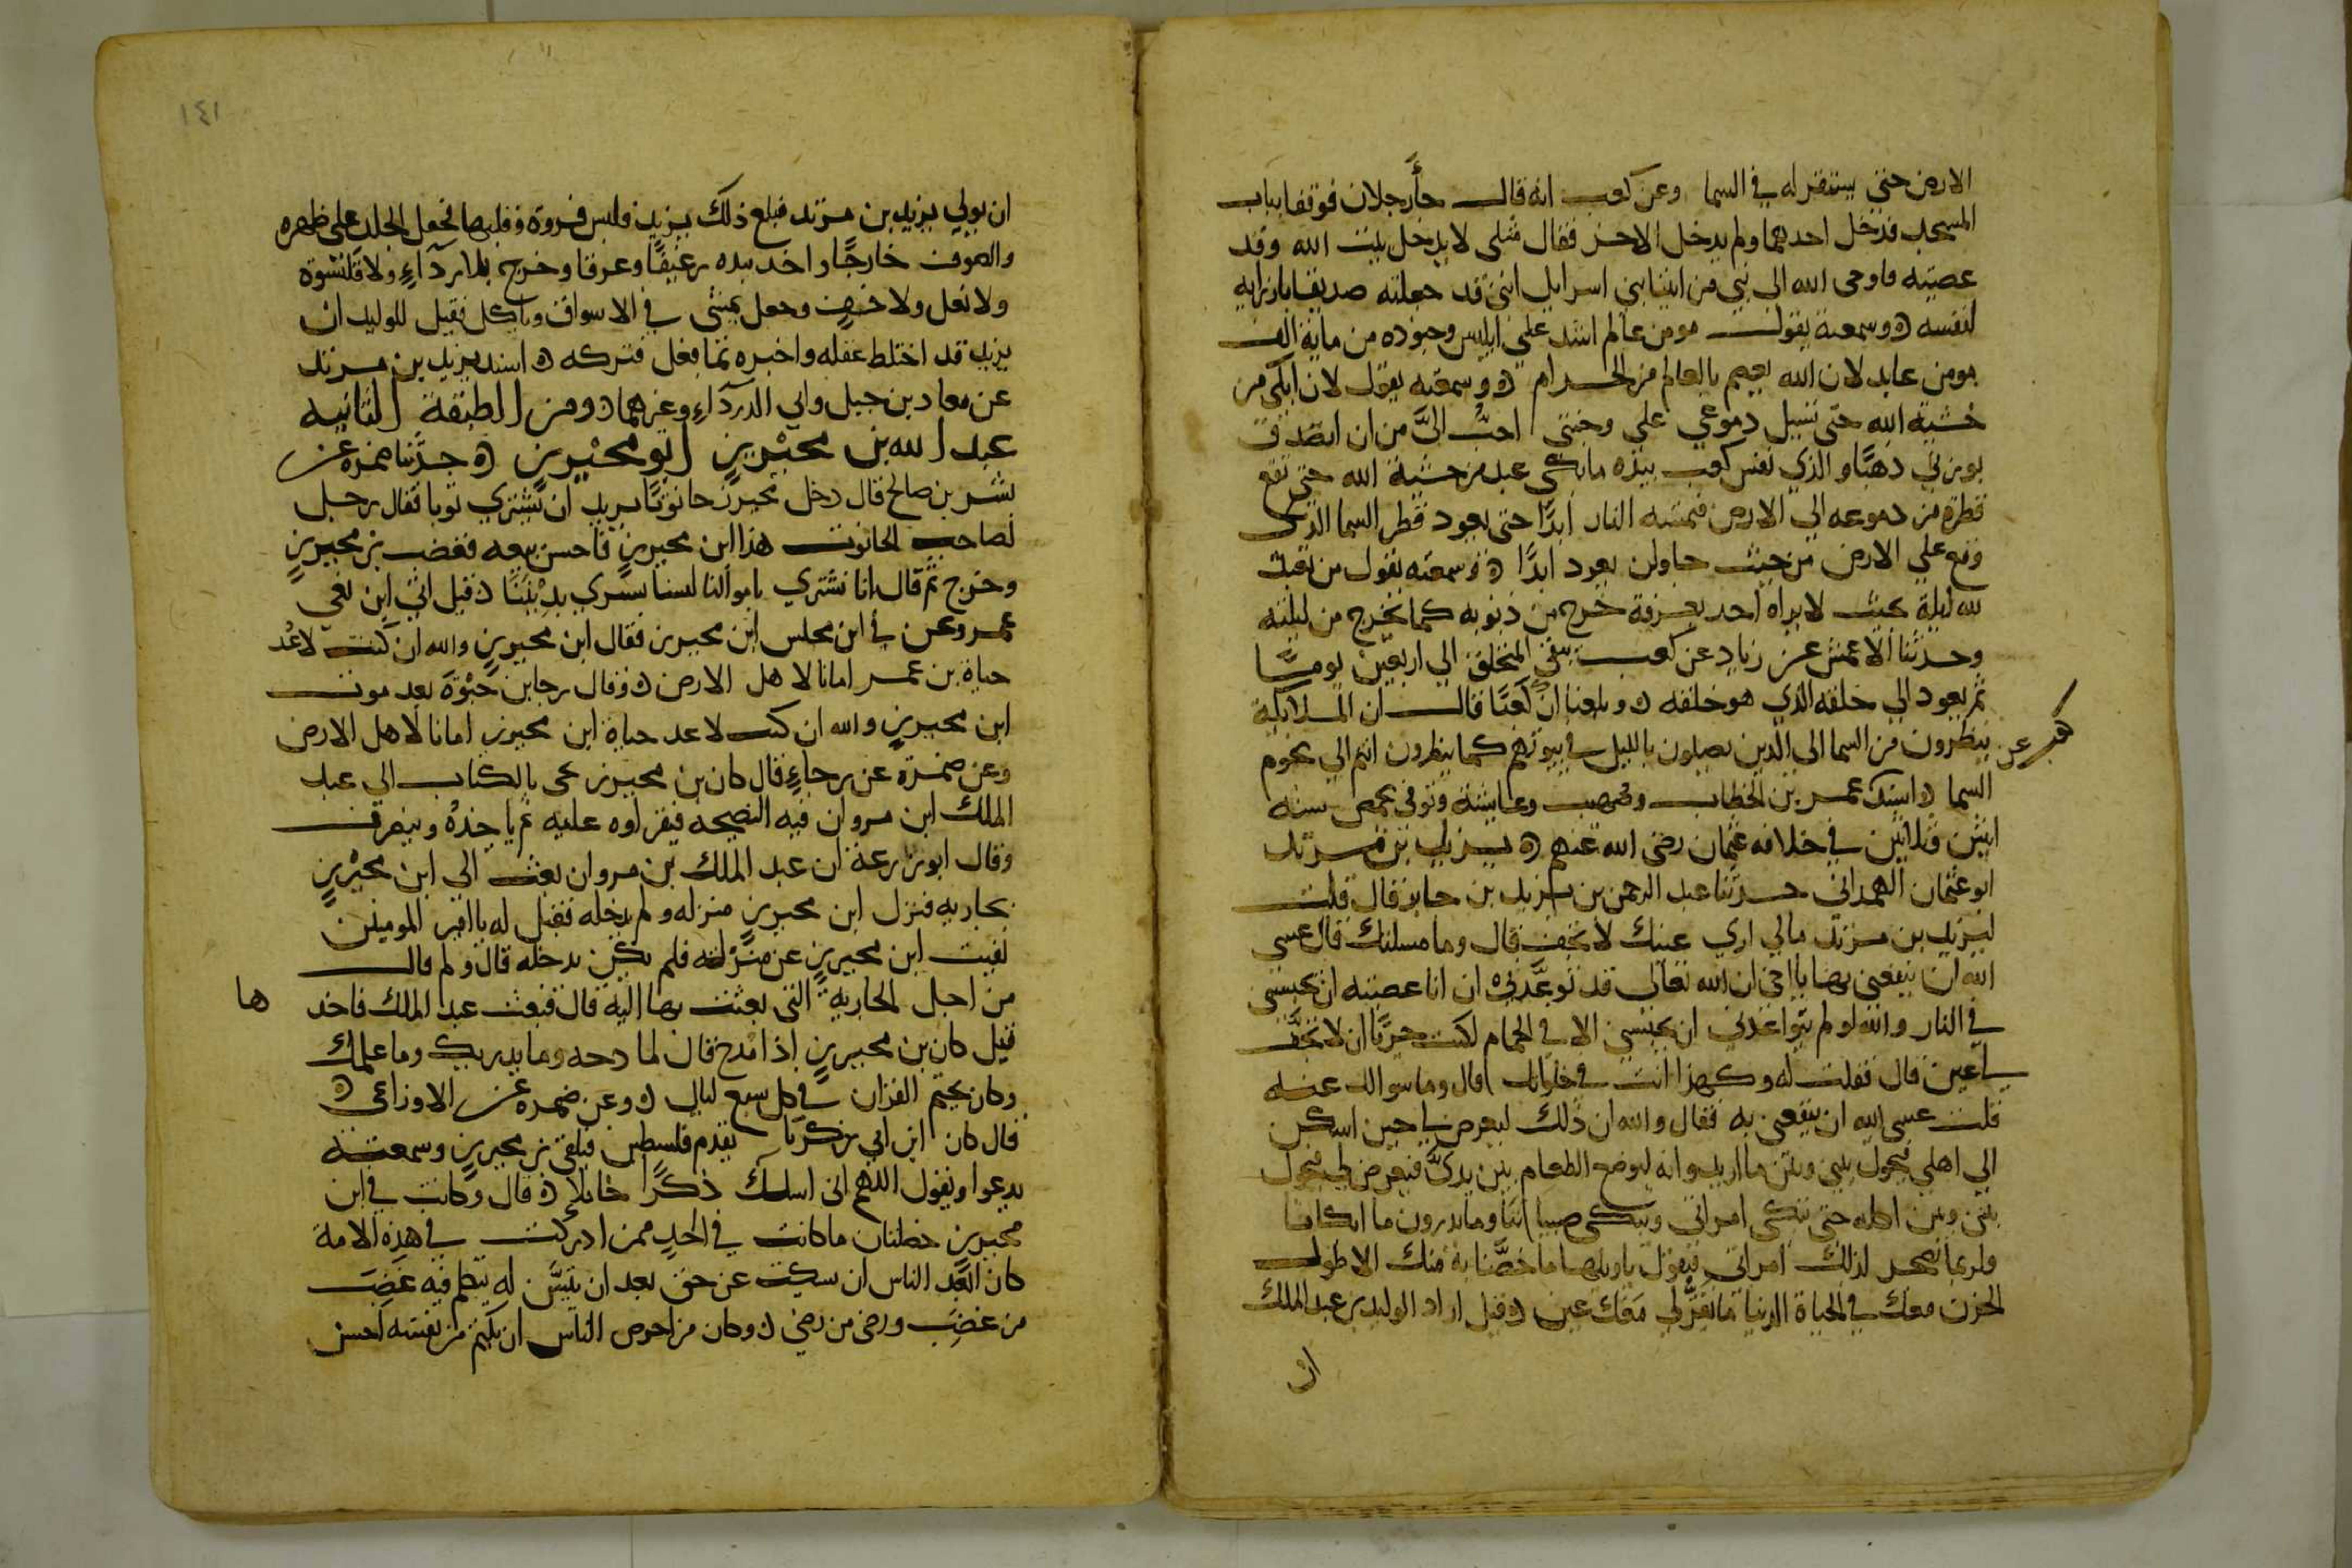 الارض حتى يستقر له في السما وعن كعب انه قال جأ رجلان فوقفا بباب
المسجد فدخل احدهما ولم يدخل الاخر فقال مثلي لا يدخل بيت الله وقد
عصيته فاوحى الله الى نبي من انبيا بني اسرايل انني قد جعلته صديقا بازرايه
لنفسه ه وسمعته يقول مومن عالم اشد على ابليس وجنوده من ماية الف
مومن عابد لان الله يعصم بالعالم من الحرام ه وسمعته يقول لان ابكي من
خشية الله حتى تسيل دموعي على وجنتي احبُّ اليَّ من ان اتصدق
بوزني ذهبًا والذي نفس كعب بيده ما بكى عبد من خشية الله حتى تقع
قطرة من دموعه الي الارض فتمسه النار ابدًا حتى يعود قطر السما الذي
وقع علي الارض من حيث جا ولن يعود ابدًا ه وسمعته يقول من تعبد
لله ليلة بحيث لا يراه احد يعرفه خرج من ذنوبه كما يخرج من ليلته
وحدثنا الاعمش عن زياد عن كعب يبقى المتخلق الي اربعين يومًا
ثم يعود الي خلقه الذي هو خلقه ه وبلغنا ان كعبًا قال ان الملايكة
ينظرون من السما الى الذين يصلون بالليل في بيوتهم كما ينظرون انتم الي نجوم
السما ه اسند عن عمر بن الخطاب وصهيب وعايشة وتوفى بحمص سنه
اثنتين وثلاثين في خلافه عثمان رضى الله عنهم ه يزيد بن مرثد
ابو عثمان الهمداني حدثنا عبد الرحمن بن يزيد بن جابر قال قلت
ليزيد بن مرثد مالي اري عينك لا تجف قال وما مسلتك قال عسى
الله ان ينفعني بها يا اخي ان الله تعالى قد توعَّدني ان انا عصيته ان يحبسني
في النار والله لو لم يتواعدني ان يحبسني الا في الحمام لكنت حريًا ان لا تجفَّ
لي عين قال فقلت له وكهذا انت في خلواتك قال وما سوالك عنه
قلت عسى الله ان ينفعني به فقال والله ان ذلك ليعرض لي حين اسكن
الي اهلي فيحول بيني وبين ما اريد وانه ليوضع الطعام بين يديَّ فيعرض لي فيحول
بيني وبين اكله حتى تبكي امراتي وتبكي صبياننا وما يدرون ما ابكانا
ولربما اضجر لذلك امراتي فيقول ياويلها ما خصَّنا به منك الا طول
الحزن معك في الحياة الدنيا ما تقرُّ لي معك عين ه وقيل اراد الوليد بن عبد الملك
ان
١٤١
ان يولي يزيد بن مرثد فبلغ ذلك يزيد فلبس فروة وقلبها فجعل الجلد على ظهره
والصوف خارجًا واخذ بيده رغيفًا وعرقا وخرج بلا رداءٍ ولا قلنسوة
ولا نعل ولا خفٍ وجعل يمشى في الاسواق وياكل فقيل للوليد ان
يزيد قد اختلط عقله واخبره بما فعل فتركه ه اسند يزيد بن مرثد
عن معاد بن جبل وابي الدرداءِ وغيرهما ه ومن الطبقة الثانيه
عبد الله بن محيريز ابو محيريز ه حدثنا ضمره عن
بشر بن صالح قال دخل محيريز حانوتًا يريد ان يشتري ثوبا فقال رجل
لصاحب الحانوت هذا ابن محيريز فاحسن بيعه فغضب بن محيريز
وخرج ثم قال انا نشتري باموالنا لسنا نشتري بدِيْنِنَا ه قيل اتى ابن نعي
عمر ونحن في ابن مجلس ابن محيريز فقال ابن محيريز والله ان كنت لاعُد
حياة بن عمر امانا لاهل الارض ه وقال رجا بن حَيْوَة بعد موت
ابن محيريز والله ان كنت لاعد حياة ابن محيريز امانا لاهل الارض
وعن ضمرة عن رجاءٍ قال كان بن محيريز يجى بالكتاب الي عبد
الملك ابن مروان فيه النصيحه فيقراوه عليه ثم ياخذهُ وينصرف
وقال ابو زرعة ان عبد الملك بن مروان بعث الي ابن محيريز
بجاريه فنزل ابن محيريز منزله ولم يدخله فقيل له يا امير المومنين
نفيت ابن محيريز عن منزله فلم يكن يدخله قال ولم قال
من اجل الجاريه التي بعثت بها اليه قال فبعث عبد الملك فاخد ها
قيل كان بن محيريز إذا مدح قال لمادحه وما يدريك وما علمك
وكان يختم القران في كل سبع ليال ه وعن ضمره عن الاوزاعى ه
قال كان ابن ابي زكريا يقدم فلسطين فيلقى بن محيريز وسمعته
يدعوا ويقول اللهم اني اسلك ذكرًا خاملا ه قال وكانت في ابن
محيريز خصلتان ما كانت في احدٍ ممن ادركت في هذه الامة
كان ابعد الناس ان يسكت عن حق بعد ان يتبيَّن له يتكلم فيه غَضِبَ
من غضِبَ ورضى من رضيَ ه وكان من احرص الناس ان يكتم من نفسه احسن